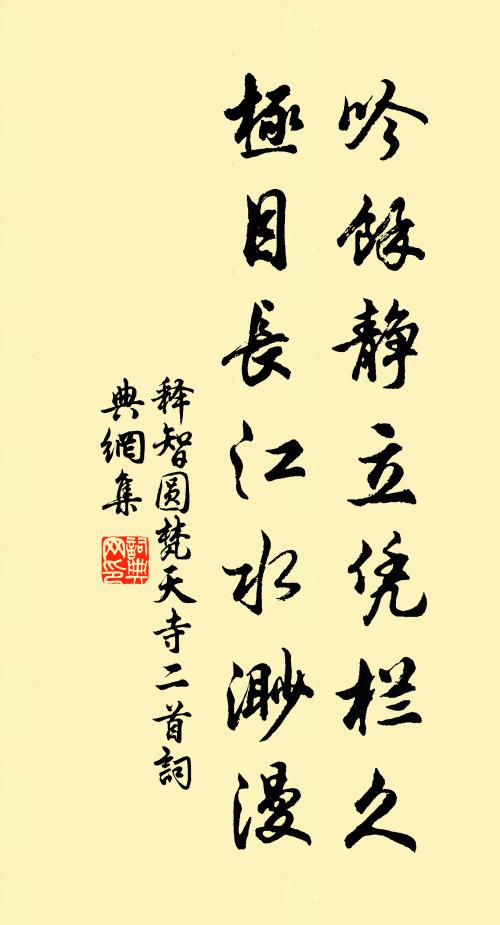 吟餘静立凭栏久
極目長江水渺漫
释智圆梵天寺二首詞
典網集
詞典
网印